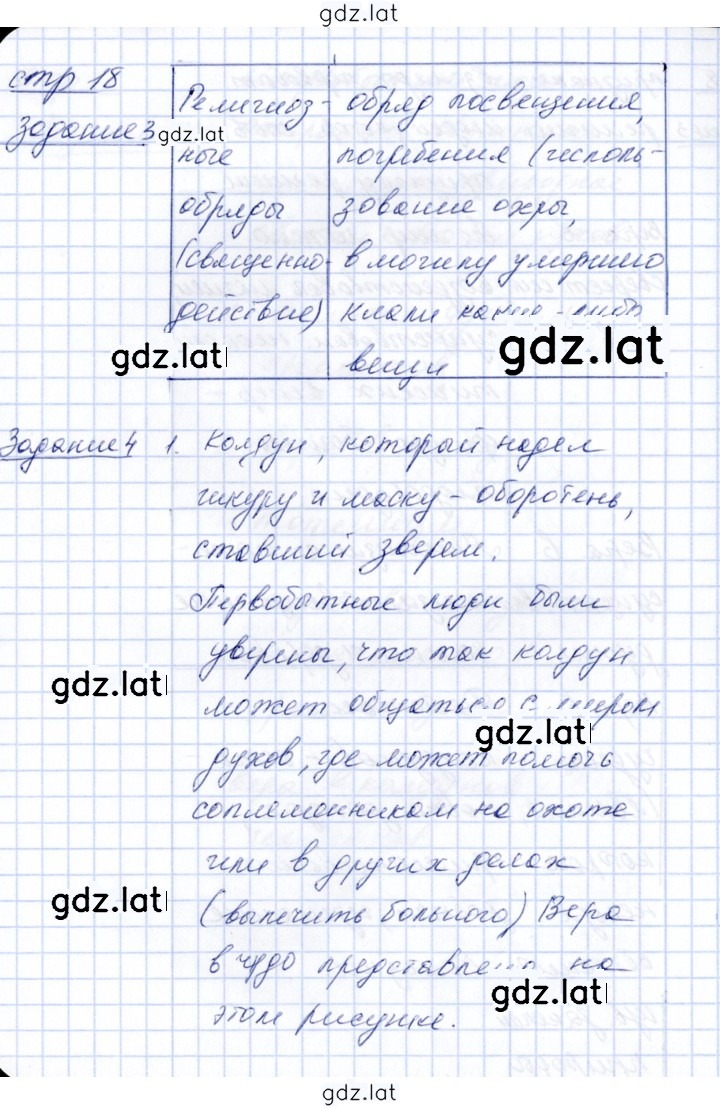 gdz.lat
стр 18
Задание 3
gdz.lat
Религиоз-
ные
обряды
(священно-
действие)
обряд посвещения,
погребения (исполь-
зование охры,
в могилу умершего
клали какие-либо
вещи
gdz.lat
gdz.lat
Задание 4
1. Колдун, который надел
шкуру и маску - оборотень,
ставший зверем.
Первобытные люди были
уверены, что так колдун
gdz.lat
может общаться с миром
gdz.lat
духов, где может помочь
соплеменникам на охоте
или в других делах
gdz.lat
(вылечить больного) Вера
в чудо представлена на
gdz.lat
этом рисунке.
gdz.lat